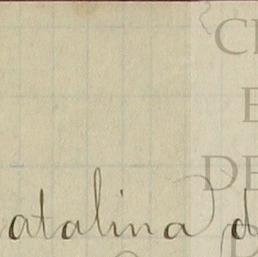 C
E
DE
atalina d